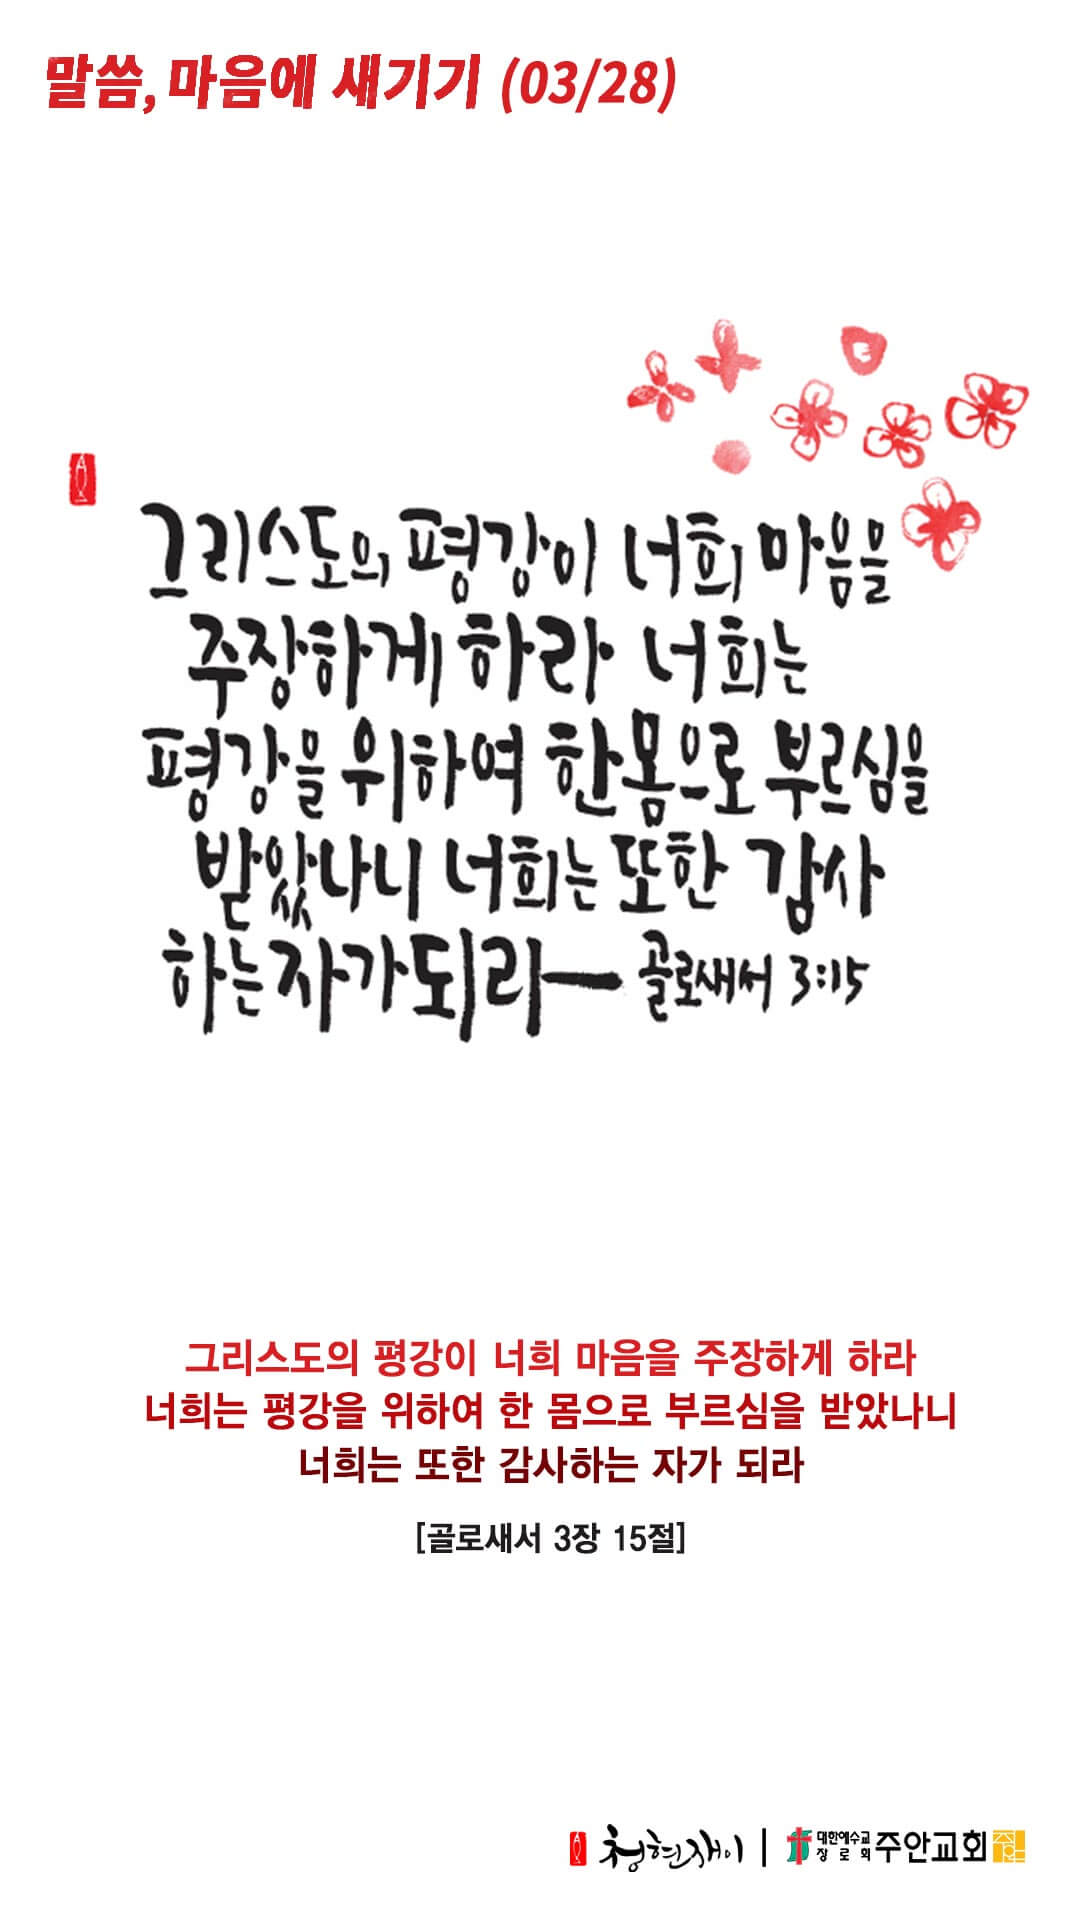 말씀, 마음에 새기기 (03/28)
그리스도의 평강이 너희 마음을
주장하게 하라 너희는
평강을 위하여 한몸으로 부르심을
받았나니 너희는 또한 감사
하는 자가 되라 - 골로새서 3:15
그리스도의 평강이 너희 마음을 주장하게 하라
너희는 평강을 위하여 한 몸으로 부르심을 받았나니
너희는 또한 감사하는 자가 되라
[골로새서 3장 15절]
청현재이 | 대한예수교장로회 주안교회